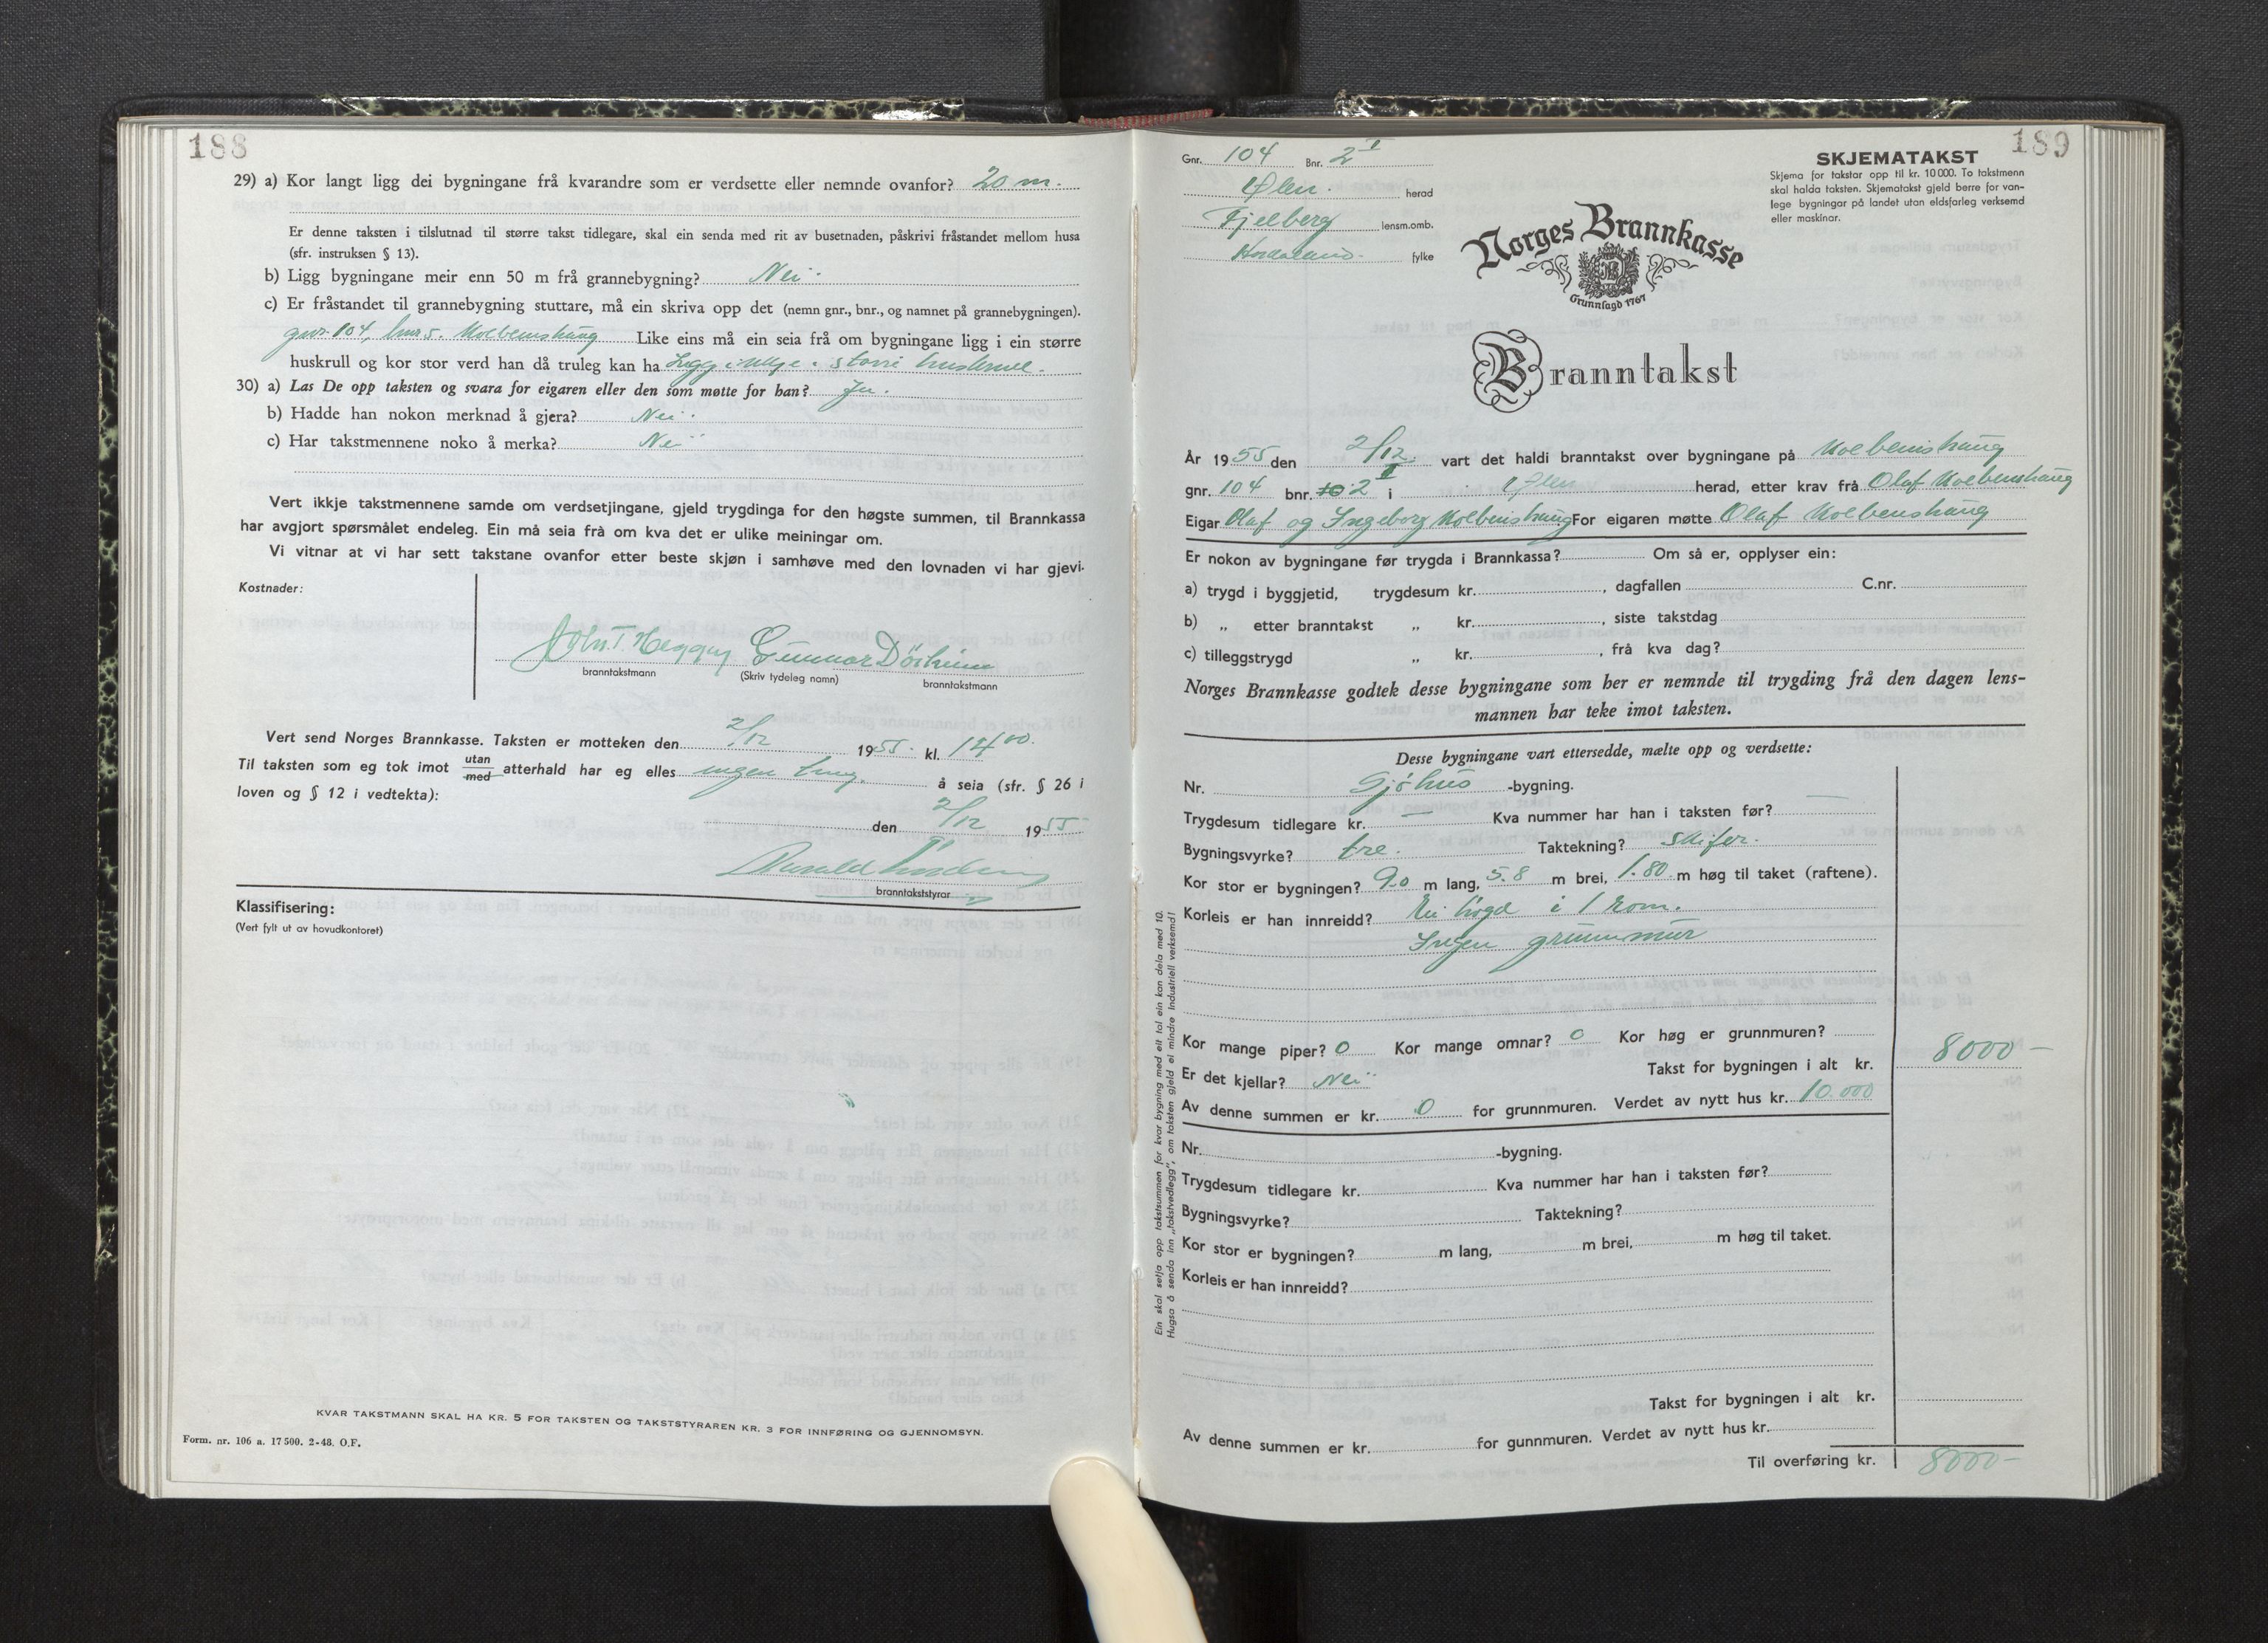 188
29) a) Kor langt ligg dei bygningane frå kvarandre som er verdsette eller nemnde ovanfor? 20 m.
Er denne taksten i tilslutnad til større takst tidlegare, skal ein senda med rit av busetnaden, påskrivi fråstandet mellom husa
(sfr. instruksen § 13).
b) Ligg bygningane meir enn 50 m frå grannebygning? Nei
c) Er fråstandet til grannebygning stuttare, må ein skriva opp det (nemn gnr., bnr., og namnet på grannebygningen).
gnr. 104, bnr 5. Kolbeinshaug Like eins må ein seia frå om bygningane ligg i ein større
huskrull og kor stor verd han då truleg kan ha Ligg ikkje i større huskrull.
30) a) Las De opp taksten og svara for eigaren eller den som møtte for han? Ja.
b) Hadde han nokon merknad å gjera? Nei
c) Har takstmennene noko å merka? Nei
Vert ikkje takstmennene samde om verdsetjingane, gjeld trygdinga for den høgste summen, til Brannkassa
har avgjort spørsmålet endeleg. Ein må seia frå om kva det er ulike meiningar om.
Vi vitnar at vi har sett takstane ovanfor etter beste skjøn i samhøve med den lovnaden vi har gjevi.
Kostnader:
John T. Gunnar
branntakstmann (Skriv tydeleg namn) branntakstmann
Vert send Norges Brannkasse. Taksten er motteken den 2/12 1955. kl. 14 00.
Til taksten som eg tok imot utan/med atterhald har eg elles ingen ting å seia (sfr. § 26 i
loven og § 12 i vedtekta):
den 2/12 1955
Harald
branntakststyrar
Klassifisering:
(Vert fylt ut av hovudkontoret)
KVAR TAKSTMANN SKAL HA KR. 5 FOR TAKSTEN OG TAKSTSTYRAREN KR. 3 FOR INNFØRING OG GJENNOMSYN.
Form. nr. 106 a. 17 500. 2-48. O.F.
189
Gnr. 104 Bnr. 2 I
Ølen. herad
Fjelberg lensm.omb.
Hordaland. fylke
SKJEMATAKST
Skjema for takstar opp til kr. 10 000. To takstmenn
skal halda taksten. Skjematakst gjeld berre for van-
lege bygningar på landet utan eldsfarleg verksemd
eller maskinar.
Norges Brannkasse
Grunnlagd 1767
Branntakst
År 1955 den 2/12. vart det haldi branntakst over bygningane på Kolbeinshaug
gnr. 104 bnr. 2 I i Ølen herad, etter krav frå Olaf Kolbeinshaug
Eigar Olaf og Ingeborg Kolbeinshaug For eigaren møtte Olaf Kolbeinshaug
Er nokon av bygningane før trygda i Brannkassa? Om så er, opplyser ein:
a) trygd i byggjetid, trygdesum kr. , dagfallen C.nr.
b) „ etter branntakst „ kr. , siste takstdag
c) tilleggstrygd „ kr. , frå kva dag?
Norges Brannkasse godtek desse bygningane som her er nemnde til trygding frå den dagen lens-
mannen har teke imot taksten.
Desse bygningane vart ettersedde, mælte opp og verdsette:
Nr. Sjøhus -bygning.
Trygdesum tidlegare kr. — Kva nummer har han i taksten før? —
Bygningsvyrke? tre. Taktekning? skifer.
Kor stor er bygningen? 9.0 m lang, 5.8 m brei, 1.80 m høg til taket (raftene).
Korleis er han innreidd? Ei høgd i 1 rom.
Ingen grunnmur
Kor mange piper? 0 Kor mange omnar? 0 Kor høg er grunnmuren?
Er det kjellar? Nei Takst for bygningen i alt kr. 8000 —
Av denne summen er kr. 0 for grunnmuren. Verdet av nytt hus kr. 10.000
Nr. -bygning.
Trygdesum tidlegare kr. Kva nummer har han i taksten før?
Bygningsvyrke? Taktekning?
Kor stor er bygningen? m lang, m brei, m høg til taket.
Korleis er han innreidd?
Takst for bygningen i alt kr.
Av denne summen er kr. for gunnmuren. Verdet av nytt hus kr.
Til overføring kr. 8000 —
Ein skal setja opp takstsummen for kvar bygning med eit tal ein kan dela med 10.
Hugsa å senda inn „takstvedlegg", om taksten gjeld ei mindre industriell verksemd!